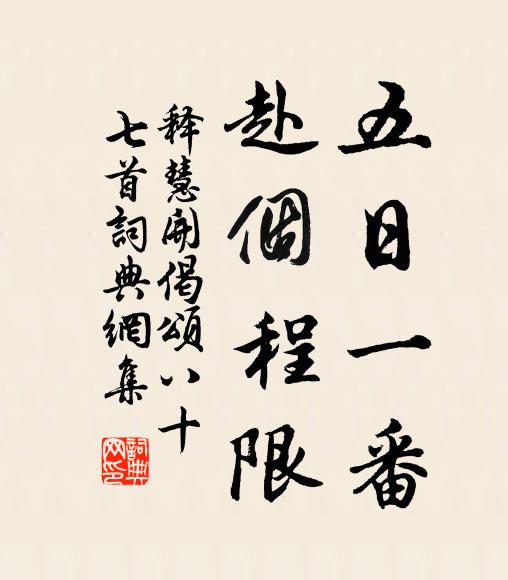 五日一番
赴個程限
释慧開偈頌八十
七首詞典網集
詞典网印